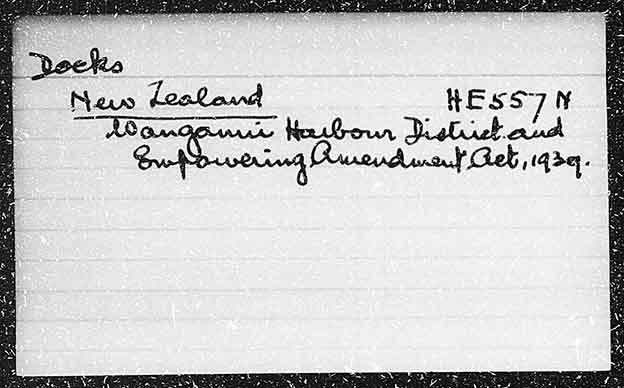 Docks
New Zealand HE557N
Wanganui Harbour District and
Empowering Amendment Act, 1939.